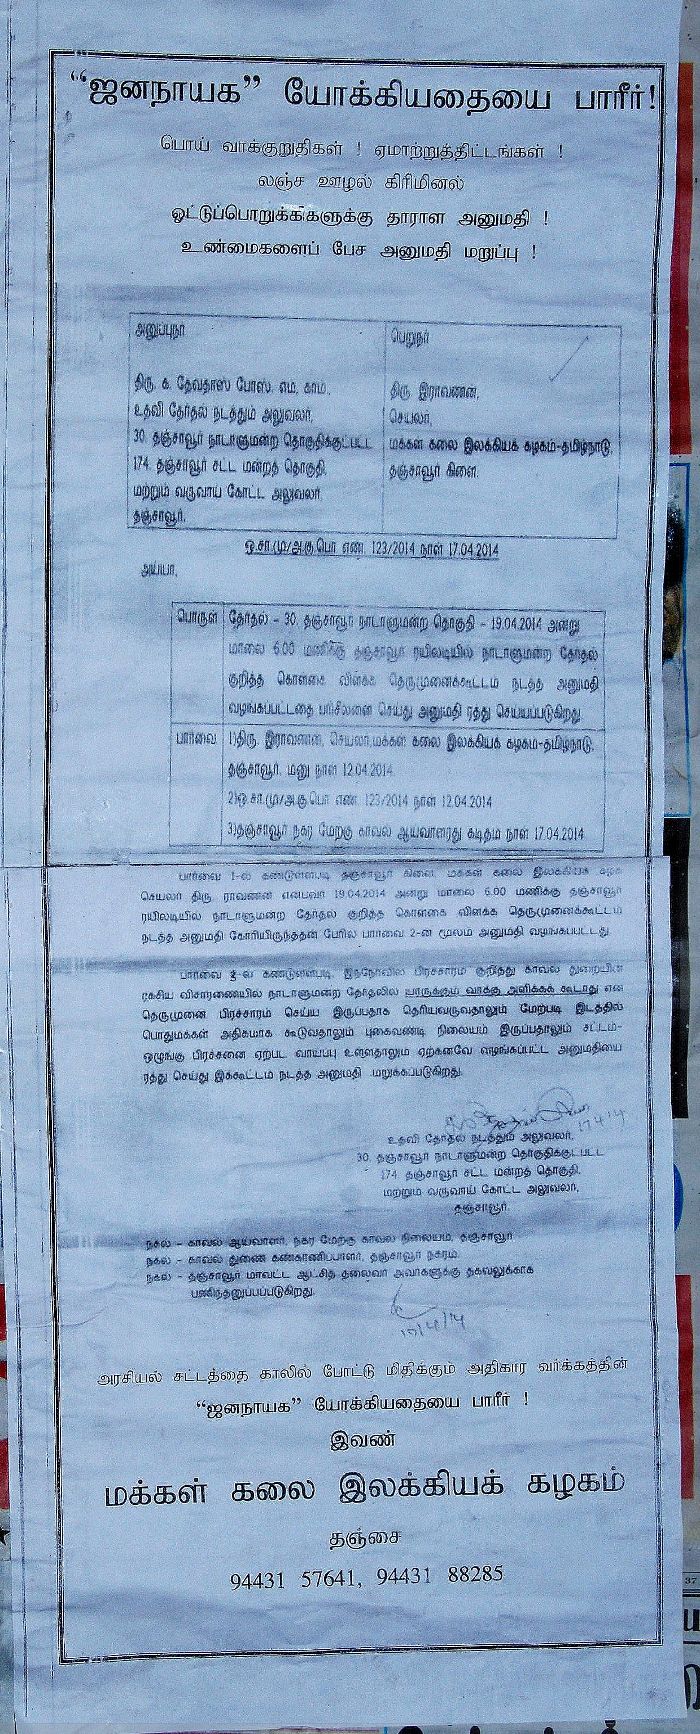 “ஜனநாயக” யோக்கியதையை பாரீர்!
பொய் வாக்குறுதிகள் ! ஏமாற்றுத்திட்டங்கள் !
லஞ்ச ஊழல் கிரிமினல்
ஓட்டுப்பொறுக்கிகளுக்கு தாராள அனுமதி !
உண்மைகளைப் பேச அனுமதி மறுப்பு !
அனுப்புநர்
திரு. க. தேவதாஸ் போஸ், எம். காம்.,
உதவி தேர்தல் நடத்தும் அலுவலர்,
30. தஞ்சாவூர் நாடாளுமன்ற தொகுதிக்குட்பட்ட
174. தஞ்சாவூர் சட்ட மன்றத் தொகுதி,
மற்றும் வருவாய் கோட்ட அலுவலர்,
தஞ்சாவூர்.
பெறுநர்
திரு இராவணன்,
செயலர்,
மக்கள் கலை இலக்கியக் கழகம்-தமிழ்நாடு,
தஞ்சாவூர் கிளை.
ஒ.சா.மு/அ.கு.பொ எண். 123/2014 நாள் 17.04.2014
அய்யா,
பொருள் தேர்தல் – 30. தஞ்சாவூர் நாடாளுமன்ற தொகுதி – 19.04.2014 அன்று
மாலை 6.00 மணிக்கு தஞ்சாவூர் ரயிலடியில் நாடாளுமன்ற தேர்தல்
குறித்த கொள்கை விளக்க தெருமுனைக்கூட்டம் நடத்த அனுமதி
வழங்கப்பட்டதை பரிசீலனை செய்து அனுமதி ரத்து செய்யப்படுகிறது
பார்வை 1)திரு. இராவணன், செயலர்,மக்கள் கலை இலக்கியக் கழகம்-தமிழ்நாடு,
தஞ்சாவூர், மனு நாள் 12.04.2014.
2)ஒ.சா.மு/அ.கு.பொ எண். 123/2014 நாள் 12.04.2014
3)தஞ்சாவூர் நகர மேற்கு காவல் ஆய்வாளரது கடிதம் நாள் 17.04.2014.
பார்வை 1-ல் கண்டுள்ளபடி தஞ்சாவூர் கிளை மக்கள் கலை இலக்கியக் கழக
செயலர் திரு. ராவணன் என்பவர் 19.04.2014 அன்று மாலை 6.00 மணிக்கு தஞ்சாவூர்
ரயிலடியில் நாடாளுமன்ற தேர்தல் குறித்த கொள்கை விளக்க தெருமுனைக்கூட்டம்
நடத்த அனுமதி கோரியிருந்ததன் பேரில் பார்வை 2-ன் மூலம் அனுமதி வழங்கப்பட்டது.
பார்வை 3-ல் கண்டுள்ளபடி, இந்நேர்வில் பிரச்சாரம் குறித்து காவல் துறையின்
ரகசிய விசாரணையில் நாடாளுமன்ற தேர்தலில் யாருக்கும் வாக்கு அளிக்கக் கூடாது என
தெருமுனை பிரச்சாரம் செய்ய இருப்பதாக தெரியவருவதாலும் மேற்படி இடத்தில்
பொதுமக்கள் அதிகமாக கூடுவதாலும் புகைவண்டி நிலையம் இருப்பதாலும் சட்டம்-
ஒழுங்கு பிரச்சனை ஏற்பட வாய்ப்பு உள்ளதாலும் ஏற்கனவே வழங்கப்பட்ட அனுமதியை
ரத்து செய்து இக்கூட்டம் நடத்த அனுமதி மறுக்கப்படுகிறது.
17/4/14
உதவி தேர்தல் நடத்தும் அலுவலர்,
30. தஞ்சாவூர் நாடாளுமன்ற தொகுதிக்குட்பட்ட
174. தஞ்சாவூர் சட்ட மன்றத் தொகுதி,
மற்றும் வருவாய் கோட்ட அலுவலர்,
தஞ்சாவூர்.
நகல் – காவல் ஆய்வாளர், நகர மேற்கு காவல் நிலையம், தஞ்சாவூர்
நகல் – காவல் துணை கண்காணிப்பாளர், தஞ்சாவூர் நகரம்.
நகல் – தஞ்சாவூர் மாவட்ட ஆட்சித் தலைவர் அவர்களுக்கு தகவலுக்காக
பணிந்தனுப்பப்படுகிறது.
17/4/14
அரசியல் சட்டத்தை காலில் போட்டு மிதிக்கும் அதிகார வர்க்கத்தின்
“ஜனநாயக” யோக்கியதையை பாரீர் !
இவண்
மக்கள் கலை இலக்கியக் கழகம்
தஞ்சை
94431 57641, 94431 88285